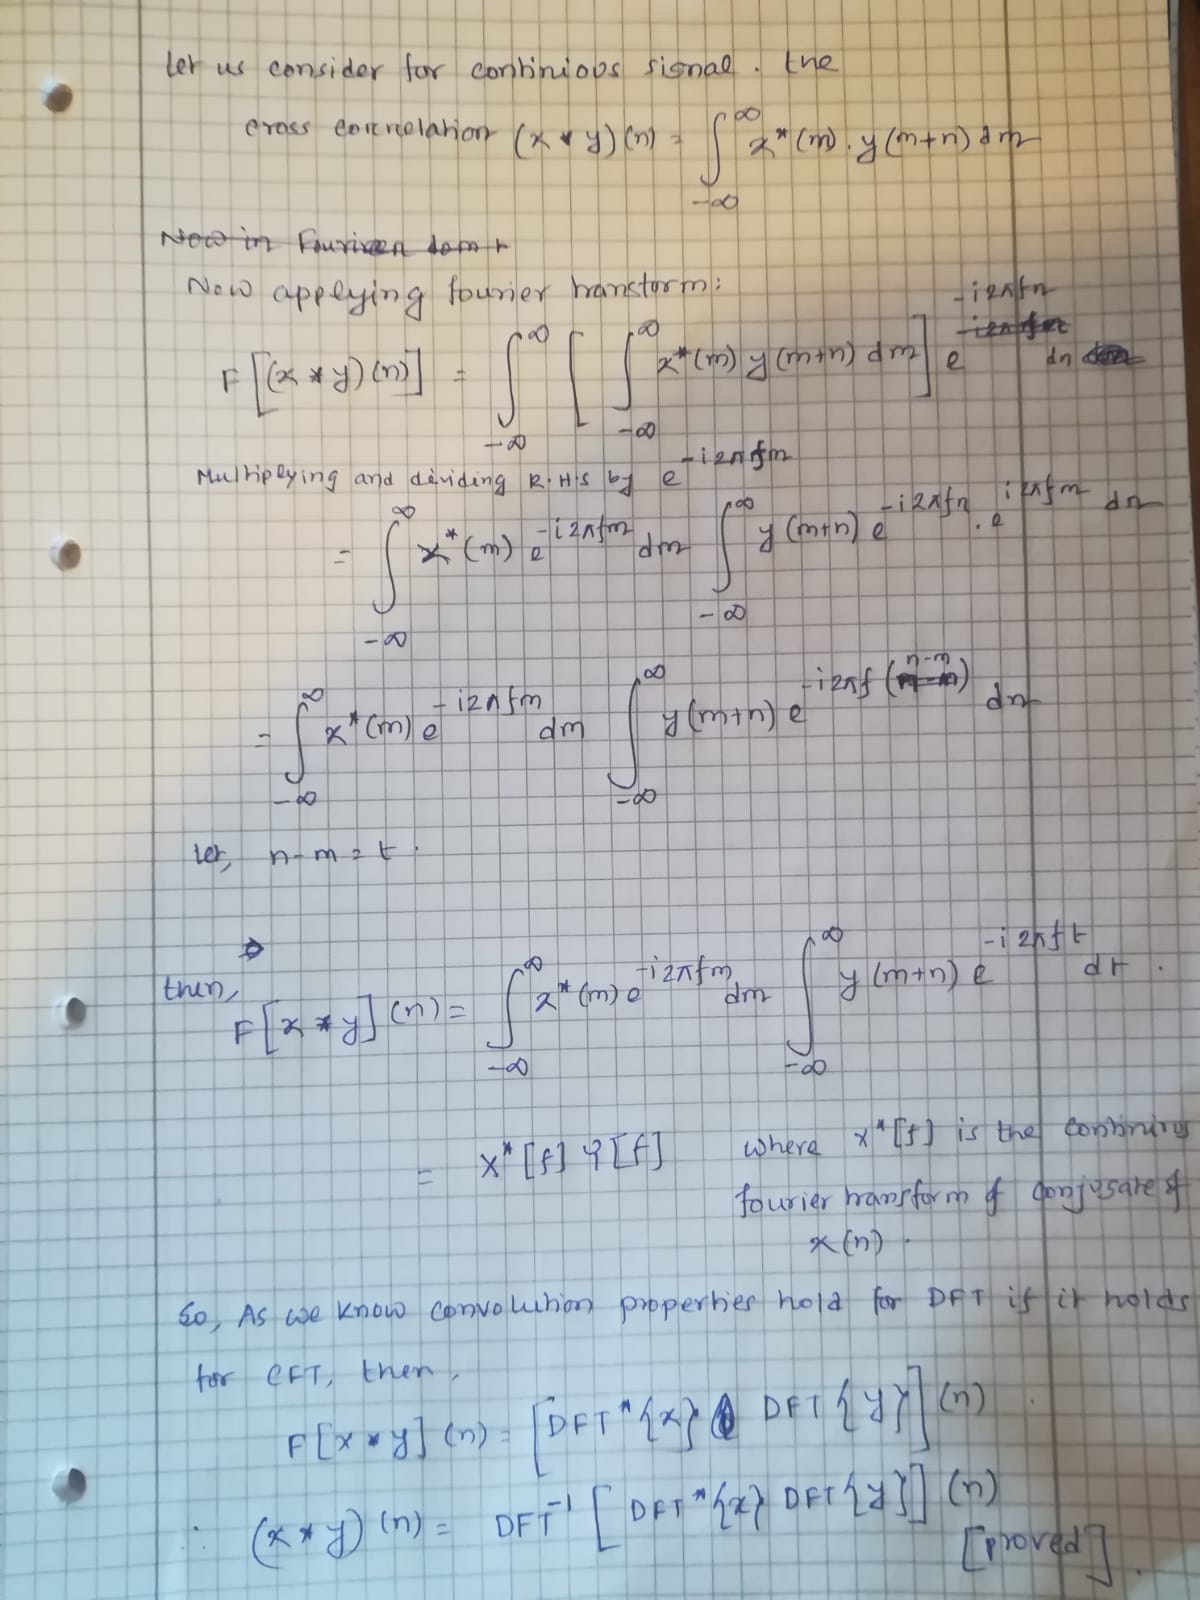 Let us consider for continious signal. the
cross correlation (x ⋆ y)(n) = ∫_{-∞}^{∞} x*(m) · y(m+n) dm
Now in Fourier dom
Now applying fourier transform:
F[(x ⋆ y)(n)] = ∫_{-∞}^{∞} [ ∫_{-∞}^{∞} x*(m) y(m+n) dm ] e^{-i2πfn} dn
Multiplying and dividing R.H.S by e^{-i2πfm}
= ∫_{-∞}^{∞} x*(m) e^{-i2πfm} dm ∫_{-∞}^{∞} y(m+n) e^{-i2πfn} · e^{i2πfm} dn
= ∫_{-∞}^{∞} x*(m) e^{-i2πfm} dm ∫_{-∞}^{∞} y(m+n) e^{-i2πf(n-m)} dn
Let, n-m = t.
then,
F[x ⋆ y](n) = ∫_{-∞}^{∞} x*(m) e^{-i2πfm} dm ∫_{-∞}^{∞} y(m+n) e^{-i2πft} dt.
= X*[f] Y[f] where X*[f] is the continius
fourier transform of conjugate of
x(n).
So, As we know convolution properties hold for DFT if it holds
for CFT, then,
F[x ⋆ y](n) = [DFT*{x} DFT{y}](n)
∴ (x ⋆ y)(n) = DFT^{-1}[DFT*{x} DFT{y}](n)
[proved].